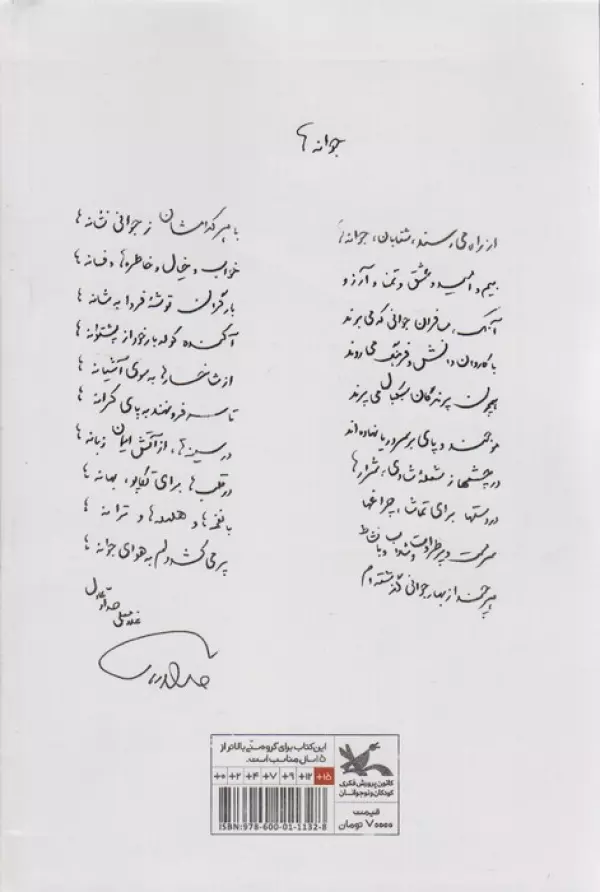 جوانه ها
از راه می رسند، شتابان، جوانه ها
با هر کدامشان ز جوانی نشانه ها
بیم و امید و عشق و تمنا و آرزو
خواب و خیال و خاطره ها و فسانه ها
آنک، مسافران جوانی که می برند
بار گران توشهٔ فردا به شانه ها
با کاروان دانش و فرهنگ می روند
آکنده کوله بار خود از پشتوانه ها
همچون پرندگان سبکبال می پرند
از شاخسارها به سوی آشیانه ها
موجند و پای بر سر دریا نهاده اند
تا سر فرو نهند به پای کرانه ها
در چشمها ز شعلهٔ شادی، شرارها
در سینه ها، از آتش ایمان زبانه ها
در دستها برای تماشا، چراغها
در قلب ها برای تکاپو، بهانه ها
سرمست و پرطراوت و شاداب و با نشاط
با نغمه ها و هلهله ها و ترانه ها
هر چند از بهار جوانی گذشته ام
پر می کشد دلم به هوای جوانه ها
غلامعلی حداد عادل
این کتاب برای گروه سنّی بالاتر از
۱۵ سال مناسب است.
+۱۵ +۱۲ +۹ +۷ +۴ +۲ +۰
ISBN: 978-600-01-1132-8
کانون پرورش فکری
کودکان و نوجوانان
قیمت
۷۰۰۰۰ تومان